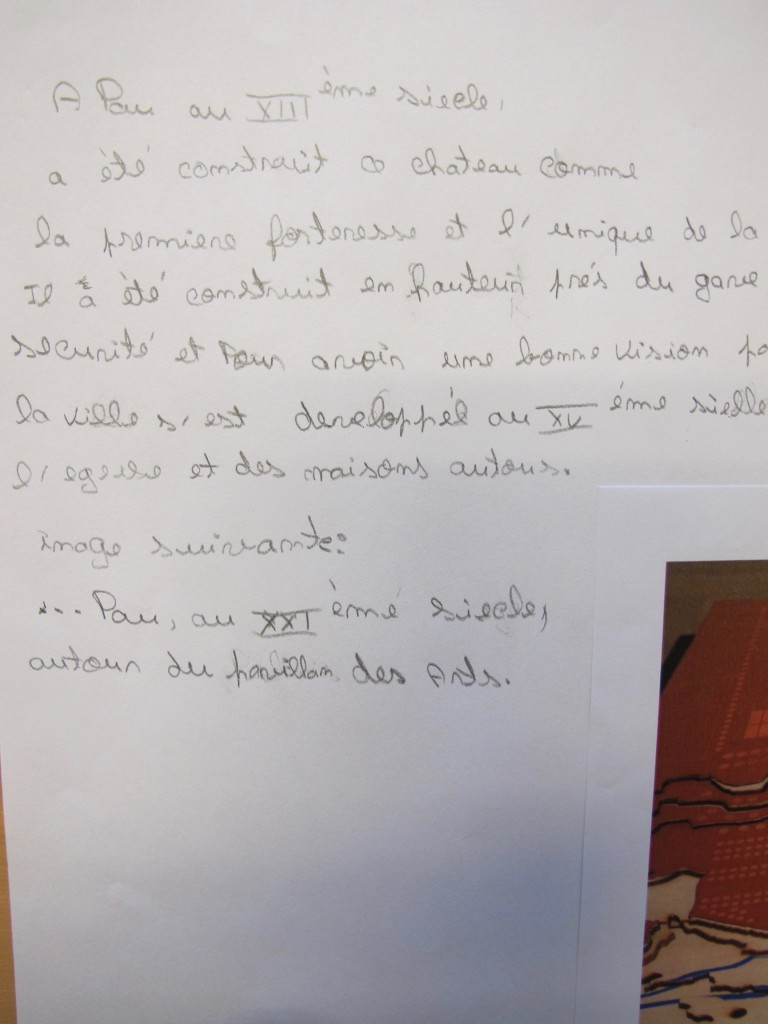 A Pau au XIII ème siecle,
a été construit ce chateau comme
la premiere forteresse et l'unique de la
Il a été construit en hauteur près du gave
securité et Pour avoir une bonne vision po
la ville s'est developpée au XV ème sielle
l'eglise et des maisons autous.
image suivante:
... Pau, au XXI ème siecle,
autour du pavillon des Arts.